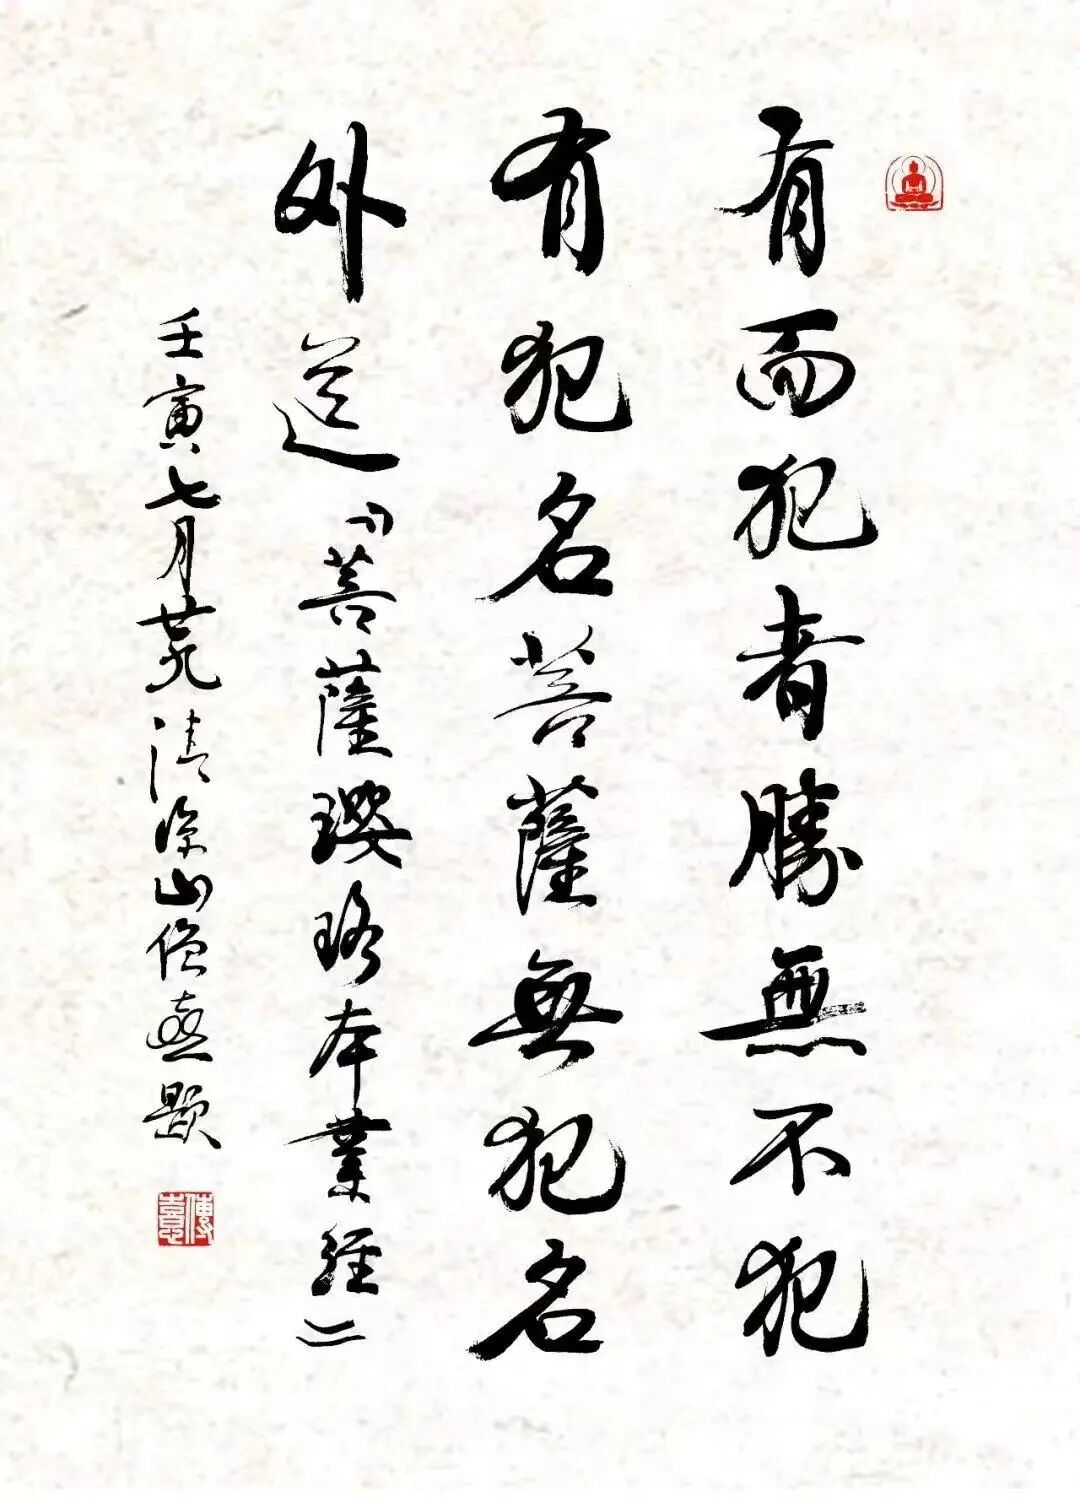 有而犯者勝無不犯
有犯名菩薩無犯名
外道《菩薩瓔珞本業經》
壬寅七月廿九清涼山傳意題
傳意